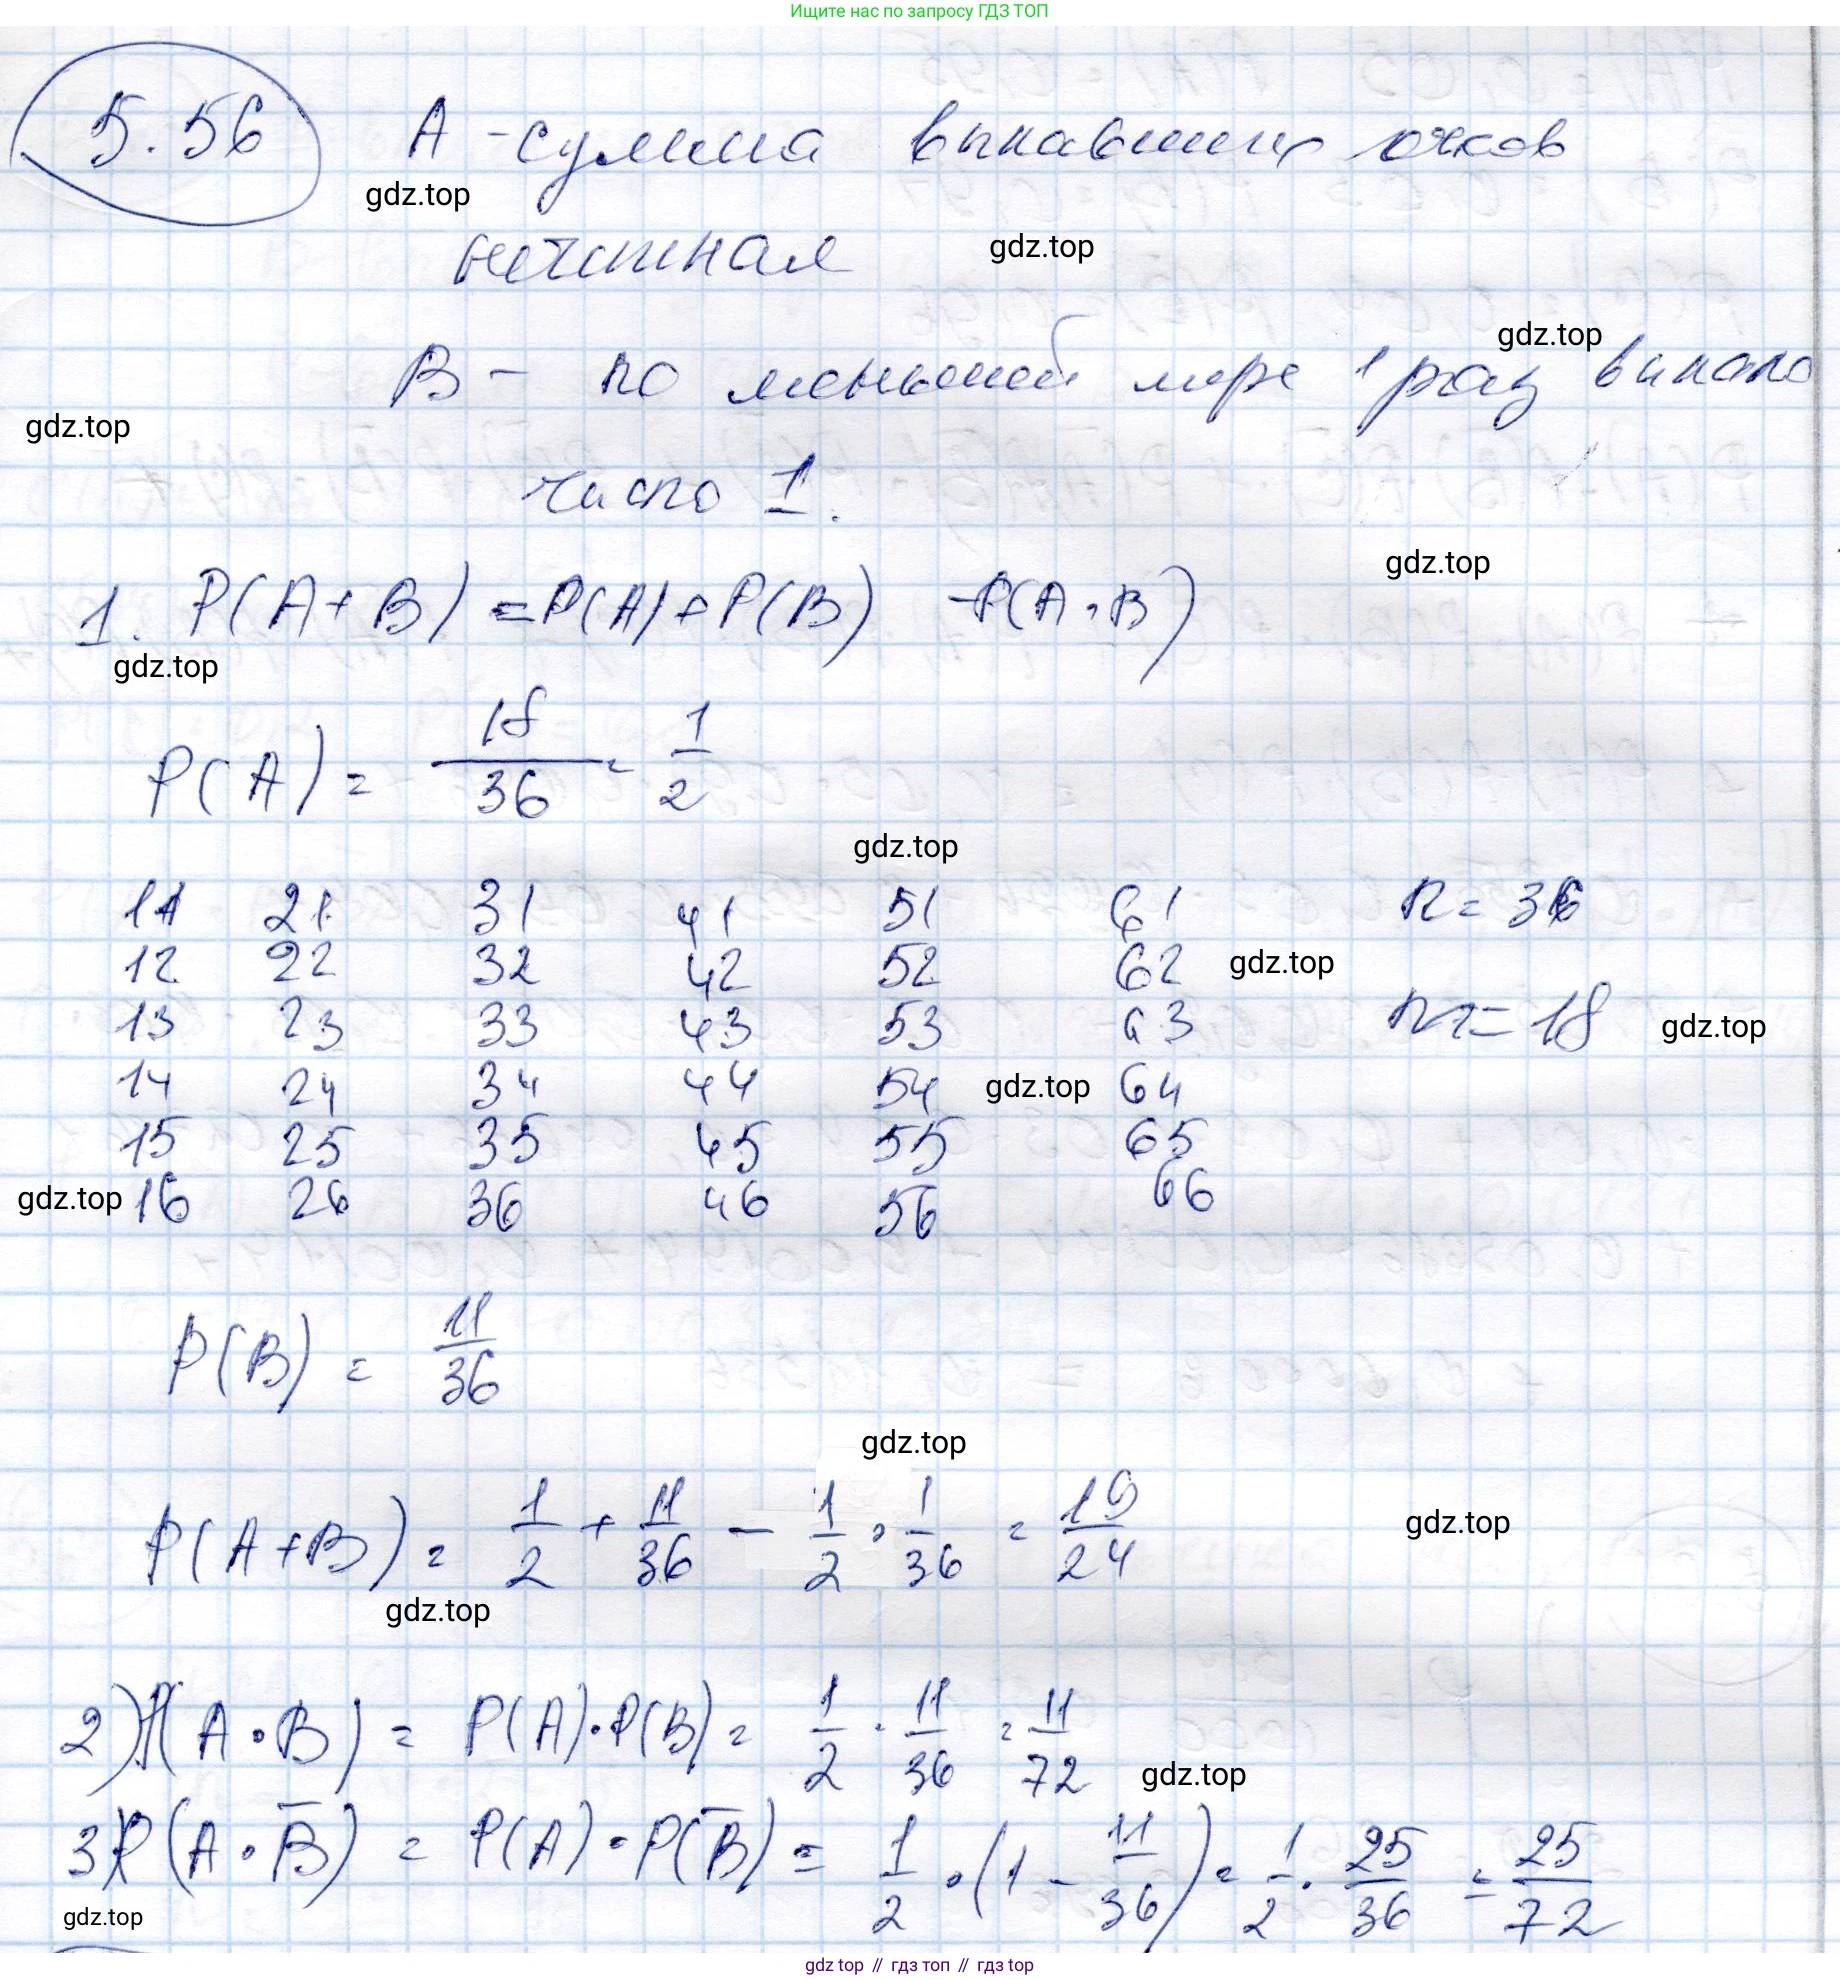 Ищите нас по запросу ГДЗ ТОП
5.56 А - сумма выпавших очков
gdz.top
нечетная gdz.top
gdz.top
В - по меньшей мере 1 раз выпало
gdz.top
число 1.
gdz.top
1. P(A+B) = P(A) + P(B) - P(A·B)
gdz.top
P(A) = 18/36 = 1/2
gdz.top
11 21 31 41 51 61 n = 36
12 22 32 42 52 62 gdz.top
13 23 33 43 53 63 m = 18 gdz.top
14 24 34 44 54 gdz.top 64
15 25 35 45 55 65
gdz.top 16 26 36 46 56 66
P(B) = 11/36
gdz.top
P(A+B) = 1/2 + 11/36 - 1/2 · 1/36 = 19/24 gdz.top
gdz.top
2) P(A·B) = P(A)·P(B) = 1/2 · 11/36 = 11/72
gdz.top
3) P(A·B̅) = P(A)·P(B̅) = 1/2 · (1 - 11/36) = 1/2 · 25/36 = 25/72
gdz.top
gdz top // гдз топ // gdz top